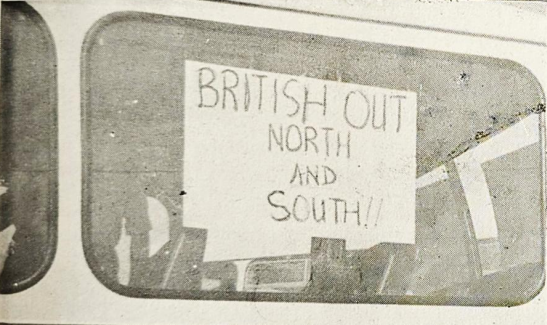 BRITISH OUT
NORTH
AND
SOUTH!!